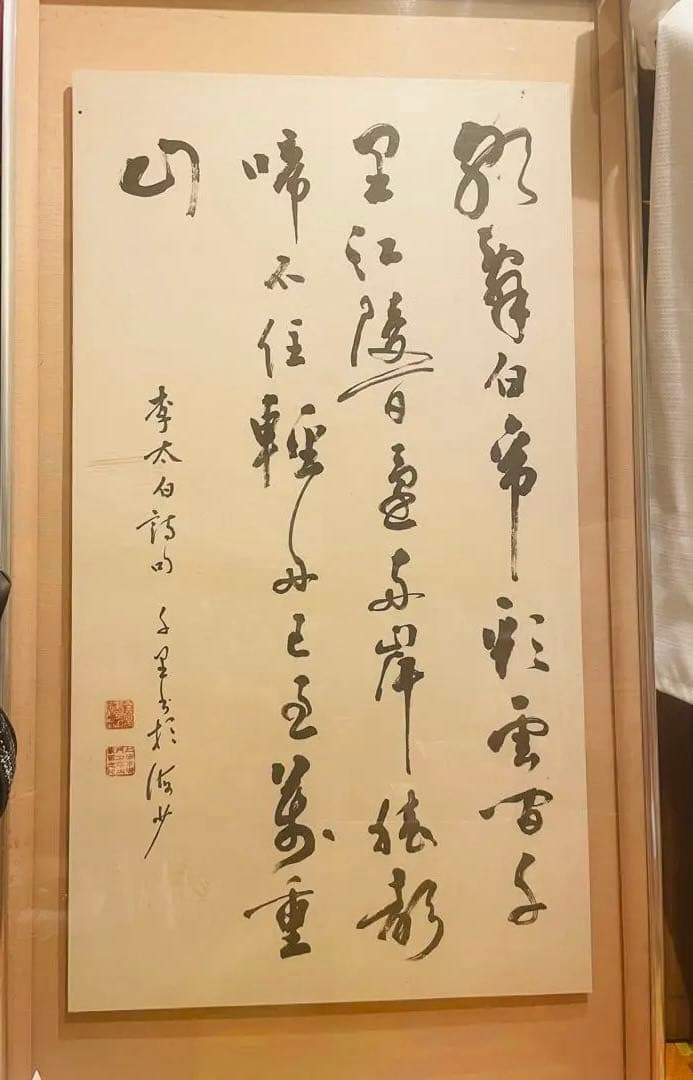 朝辭白帝彩雲間千
里江陵一日還兩岸猿聲
啼不住輕舟已過萬重
山
李太白詩句 千里書於